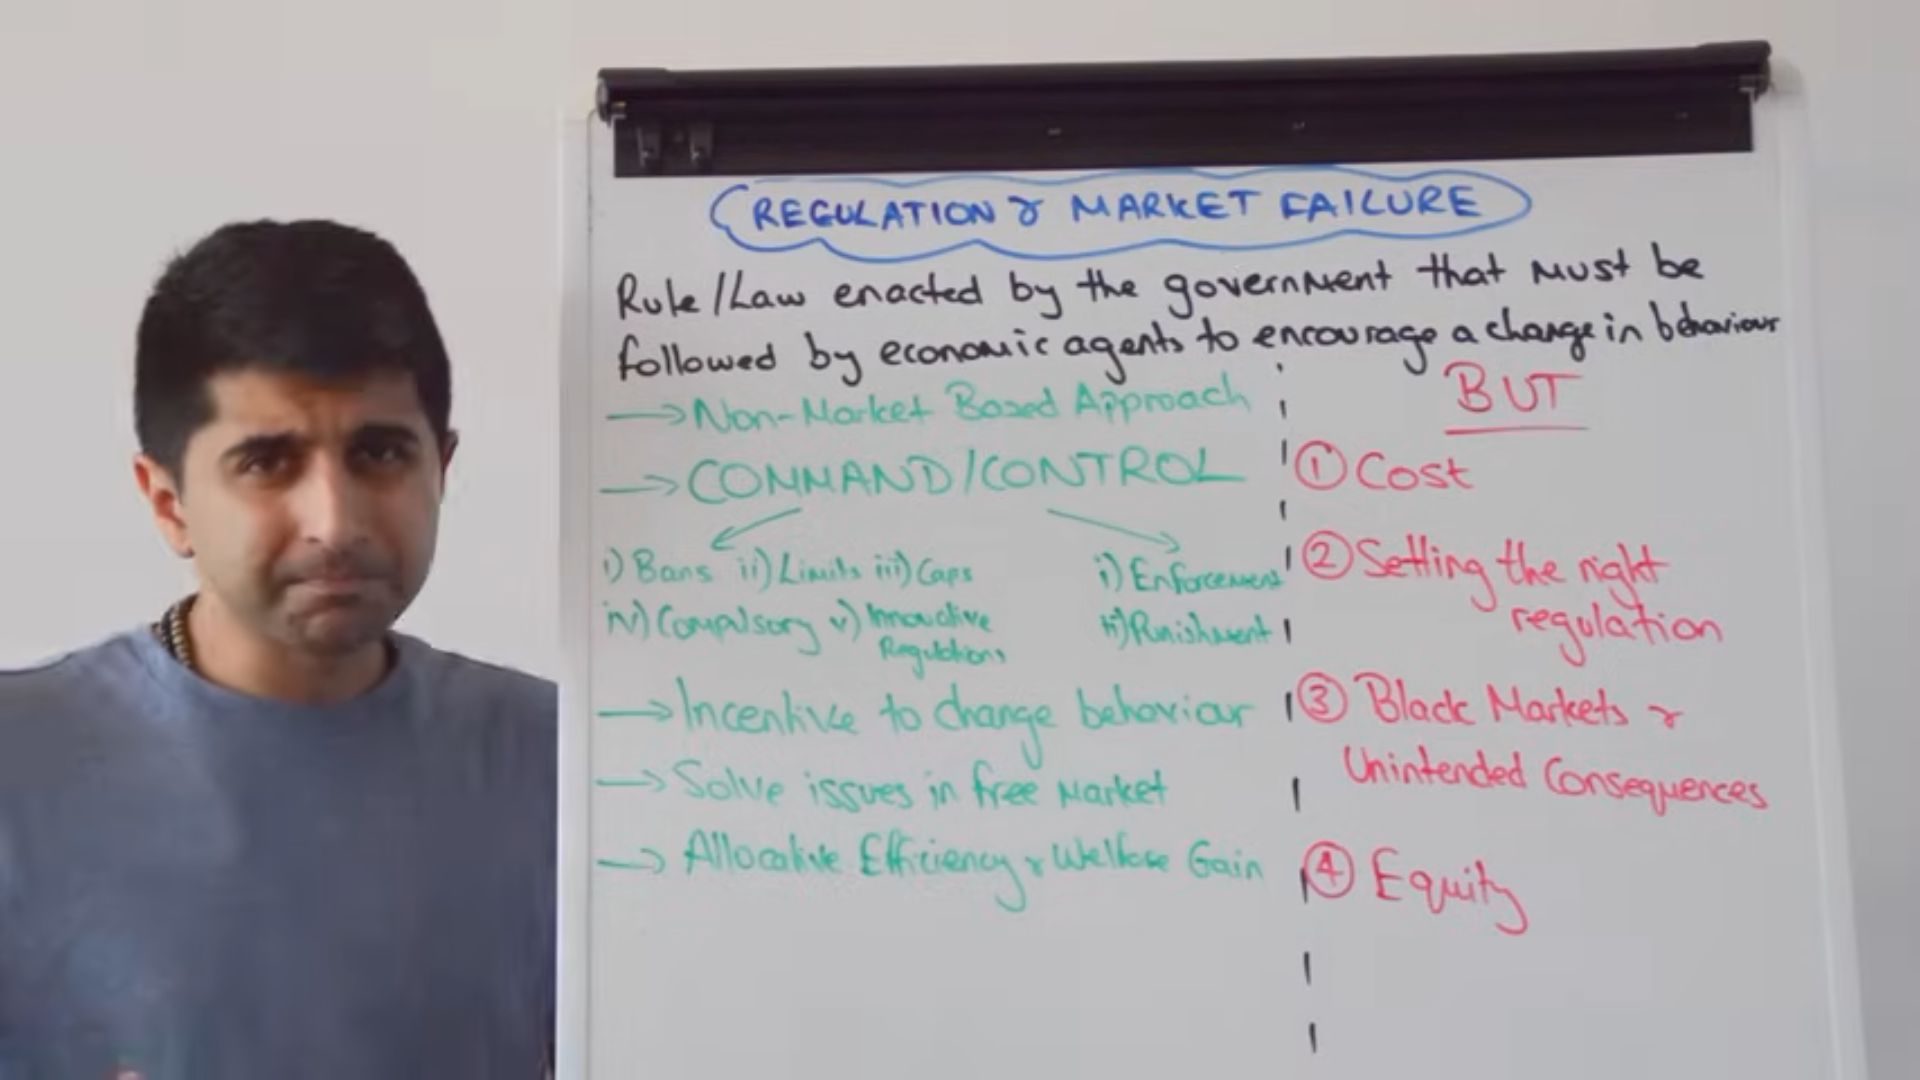 REGULATION & MARKET FAILURE
Rule/Law enacted by the government that must be
followed by economic agents to encourage a change in behaviour
→ Non-Market Based Approach
→ COMMAND/CONTROL
i) Bans ii) Limits iii) Caps
iv) Compulsory v) Innovative
Regulations
i) Enforcement
ii) Punishment
→ Incentive to change behaviour
→ Solve issues in free market
→ Allocative Efficiency & Welfare Gain
BUT
① Cost
② Setting the right
regulation
③ Black Markets &
Unintended Consequences
④ Equity